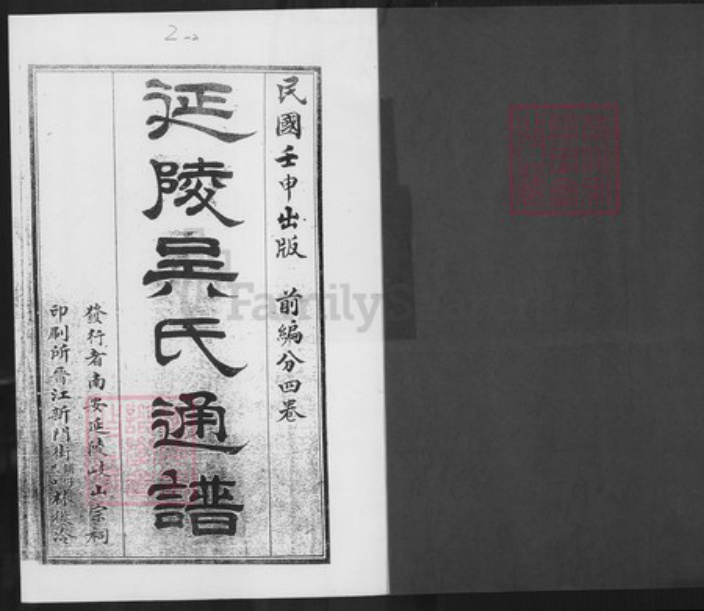 2-2
民國壬申出版 前編分四卷
延陵吳氏通譜
發行者南安延陵岐山宗祠
印刷所晉江新門街
FamilyS